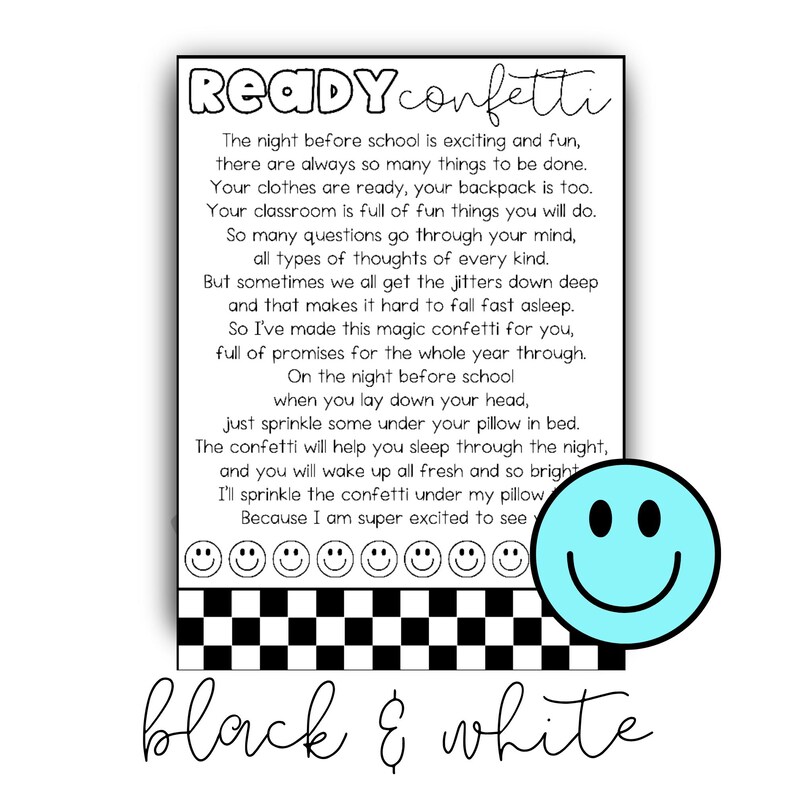 READY confetti
The night before school is exciting and fun,
there are always so many things to be done.
Your clothes are ready, your backpack is too.
Your classroom is full of fun things you will do.
So many questions go through your mind,
all types of thoughts of every kind.
But sometimes we all get the jitters down deep
and that makes it hard to fall fast asleep.
So I've made this magic confetti for you,
full of promises for the whole year through.
On the night before school
when you lay down your head,
just sprinkle some under your pillow in bed.
The confetti will help you sleep through the night,
and you will wake up all fresh and so bright
I'll sprinkle the confetti under my pillow
Because I am super excited to see
black & white